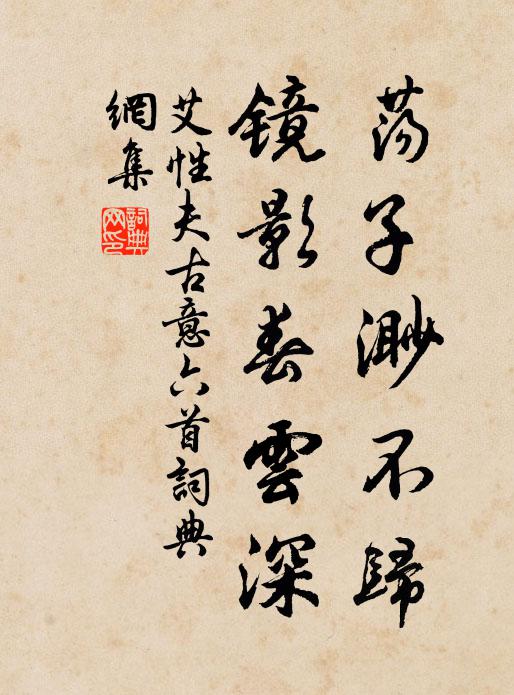 荡子渺不歸
鏡影春雲深
艾性夫古意六首詞典
網集
詞典網印